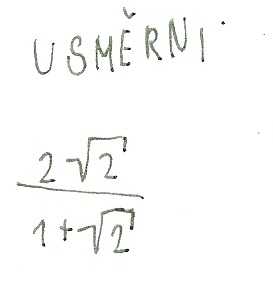 USMĚRNI
2√2
1+√2